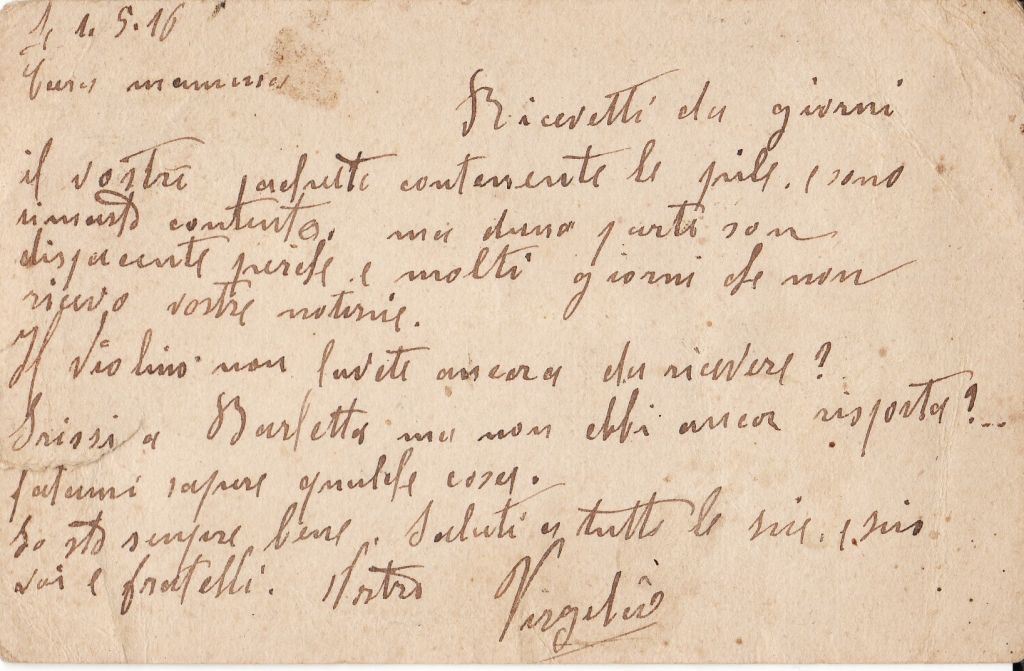 li 1. 5. 16
Cara mamma
Ricevetti da giorni
il vostre pachetto contenente le pile. e sono
rimasto contento. ma duna parti son
dispacente perche. e molti giorni che non
ricevo vostre notizie.
Il violino non lavete ancora da ricevere?
Srissi a Barletta ma non ebbi ancor risposta?...
fatami sapere qualche cosa.
Io sto sempre bene. Saluti a tutte le
voi e fratelli. Vostro Virgilio